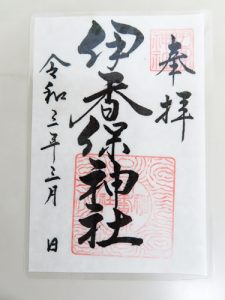 奉拝
伊香保神社
令和三年三月 日